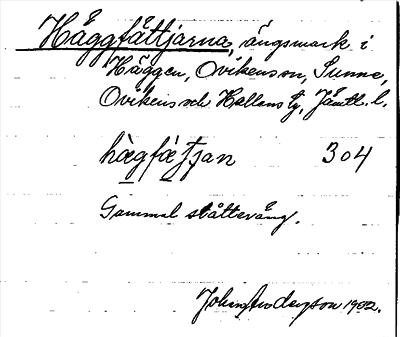 Häggfättjarna, ängsmark i
Häggen, Ovikens sn, Sunne,
Ovikens och Hallens tg, Jämtl. l.
hægfæ̀tjan 304
Gammal slåtteräng.
Johan Anderzson 1902.